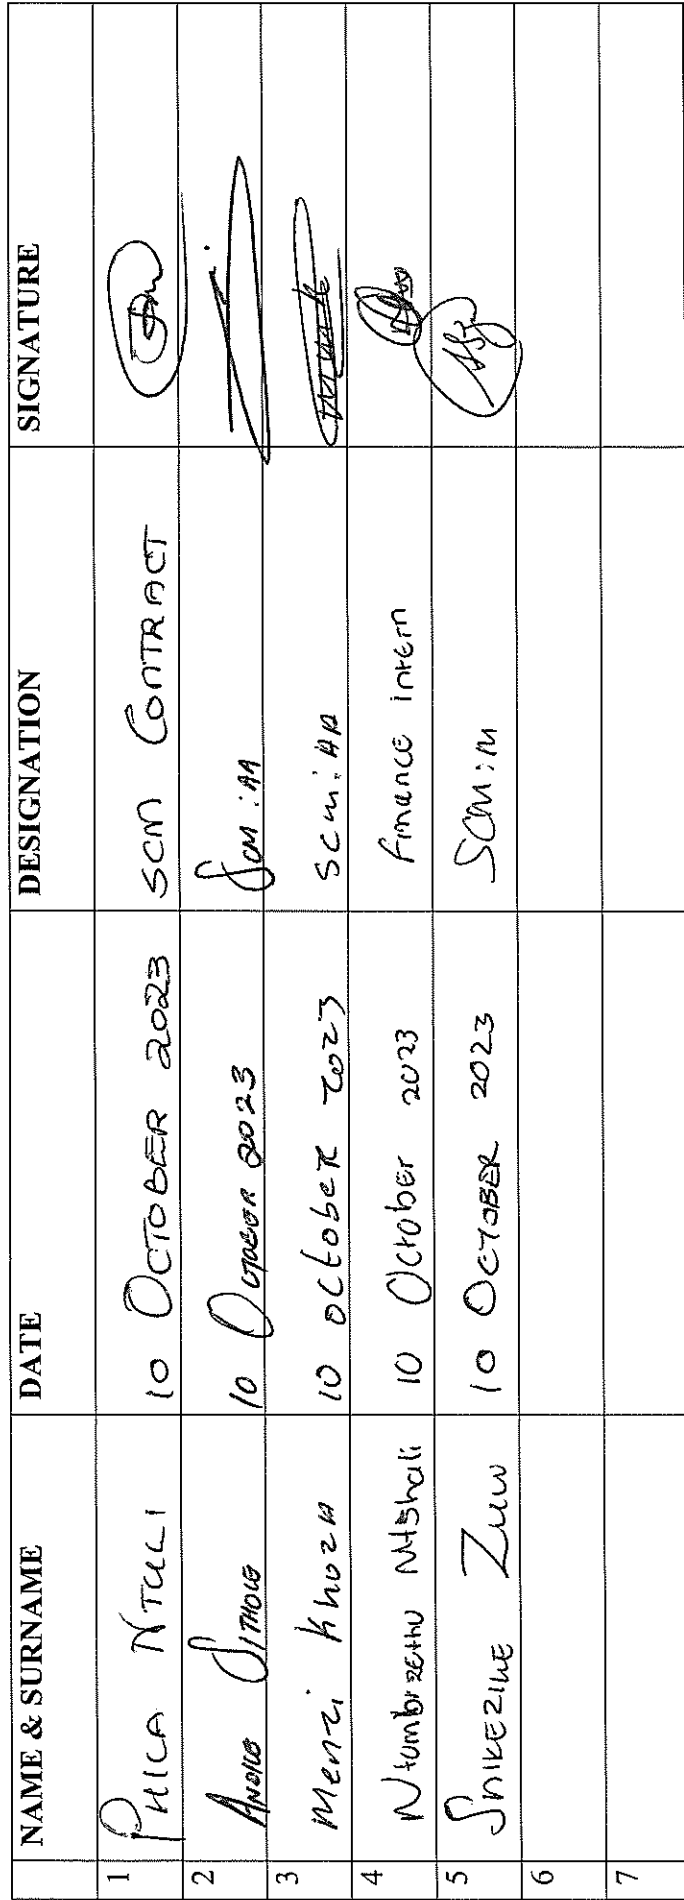 NAME & SURNAME DATE DESIGNATION SIGNATURE
1 PHILA NTULI 10 OCTOBER 2023 SCM CONTRACT
2 ANDILE SITHOLE 10 OCTOBER 2023 SCM: AA
3 Menzi Khoza 10 october 2023 SCM: AA
4 Ntombizethu Mtshali 10 October 2023 Finance intern
5 SNIKEZIWE ZULU 10 OCTOBER 2023 SCM: M
6
7